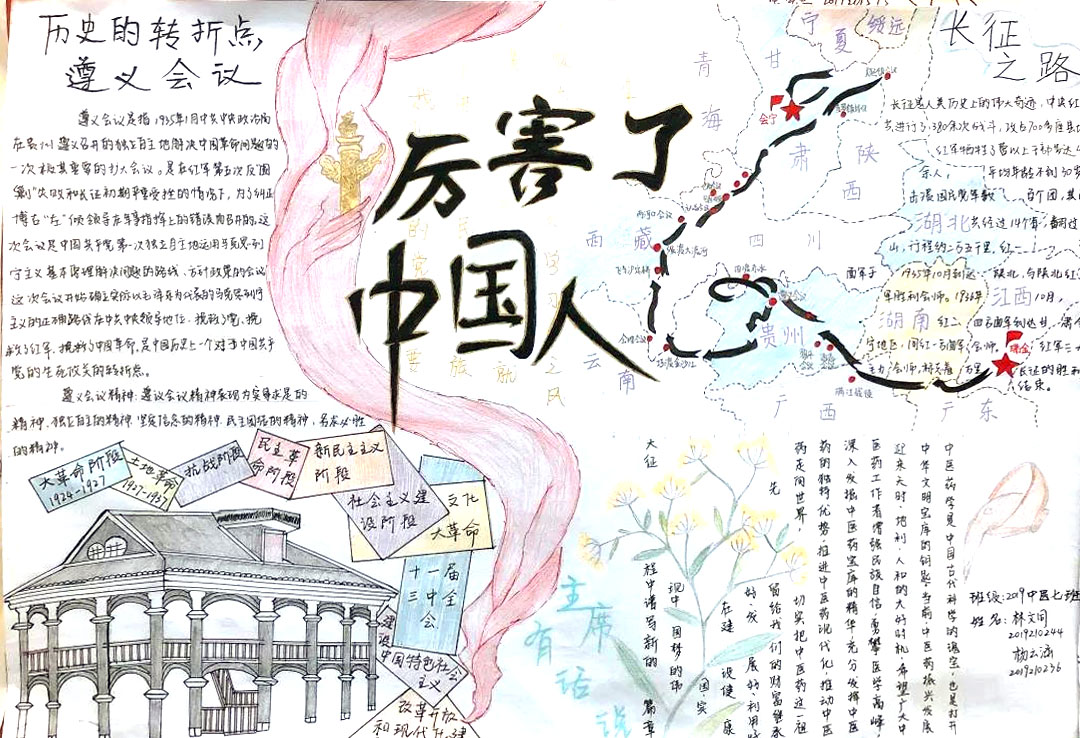 历史的转折点
遵义会议
遵义会议是指1935年1月中共中央政治局
在贵州遵义召开的独立自主地解决中国革命问题的
一次极其重要的扩大会议。是在红军第五次反“围
剿”失败和长征初期严重受挫的情况下,为了纠正
博古“左”倾领导在军事指挥上的错误而召开的,这
次会议是中国共产党第一次独立自主地运用马克思列
宁主义基本原理解决问题的路线、方针政策的会议
这次会议开始确立实际以毛泽东为代表的马克思列宁
主义的正确路线在中共中央领导地位,挽救了党、挽
救了红军、挽救了中国革命,是中国历史上一个对于中国共产
党的生死攸关的转折点。
遵义会议精神:遵义会议精神表现为实事求是的
精神,独立自主的精神,坚定信念的精神,民主团结的精神,务求必胜
的精神。
大革命阶段
1924-1927
土地革命
1927-1937
抗战阶段
民主革
命阶段
新民主主义
阶段
社会主义建
设阶段
文化
大革命
十一届
三中全
会
建设中国特色社会
主义
改革开放
和现代化建
厉害了
中国人
长征
之路
青海
甘肃
宁夏
绥远
陕西
西藏
四川
云南
贵州
广西
湖北
湖南
江西
广东
会宁
瑞金
长征是人类历史上的伟大奇迹,中央红
去进行了380余次战斗,攻占700多座县
红军牺牲了营以上干部多达
余人,
年均年龄不到30岁
击溃国民党军数
百个团,其
共经过14个省,翻过
山,行程约二万五千里,红一
1935年10月到达
陕北,与陕北红
军胜利会师。1936年
10月,
红二、四方面军到达甘
宁地区,同红一方面军
会师。
红军三大
主力
会师,标志着
万里
长征的胜利
结束。
主席
有
话
说
中医药学是中国古代科学的瑰宝,也是打开
中华文明宝库的钥匙,当前,中医药振兴发展
迎来天时、地利、人和的大好时机,希望广大中
医药工作者增强民族自信,勇攀医学高峰,
深入发掘中医药宝库的精华,充分发挥中医
药的独特优势,推进中医药现代化,推动中医
药走向世界,
切实把中医药这一祖
先
留给我们的财富继承
好、发展好、利用好
在建设健康
中国、实
现中国梦的伟
大征
程中谱写新的篇章
班级:2019中医七班
姓名:林文同
2019210244
杨云涵
2019210236